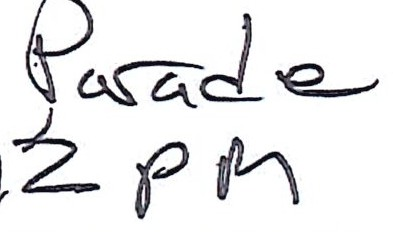 Parade
2 PM